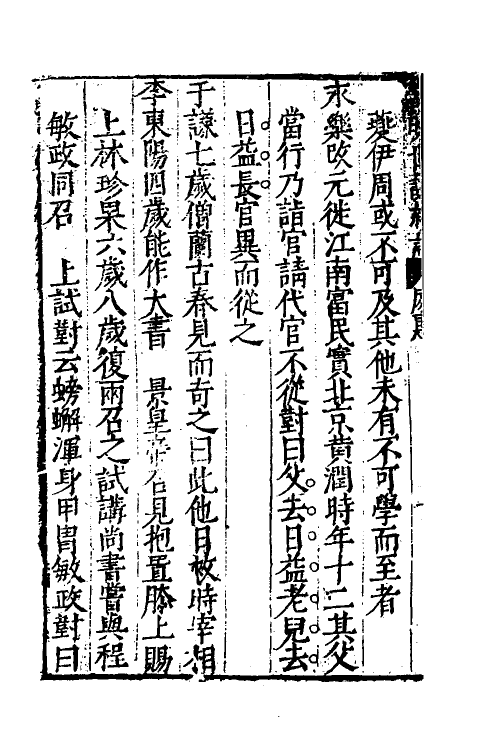 夔伊周或不可及其他未有不可學而至者
永樂改元徙江南富民實北京黃潤時年十二其父
當行乃詣官請代官不從對曰父去日益老兒去
日益長官異而從之
于謙七歲僧蘭古春見而奇之曰此他日救時宰相
李東陽四歲能作大書　景皇帝召見抱置膝上賜
上林珍果六歲八歲復兩召之試講尚書嘗與程
敏政同召　上試對云螃蠏渾身甲胄敏政對曰